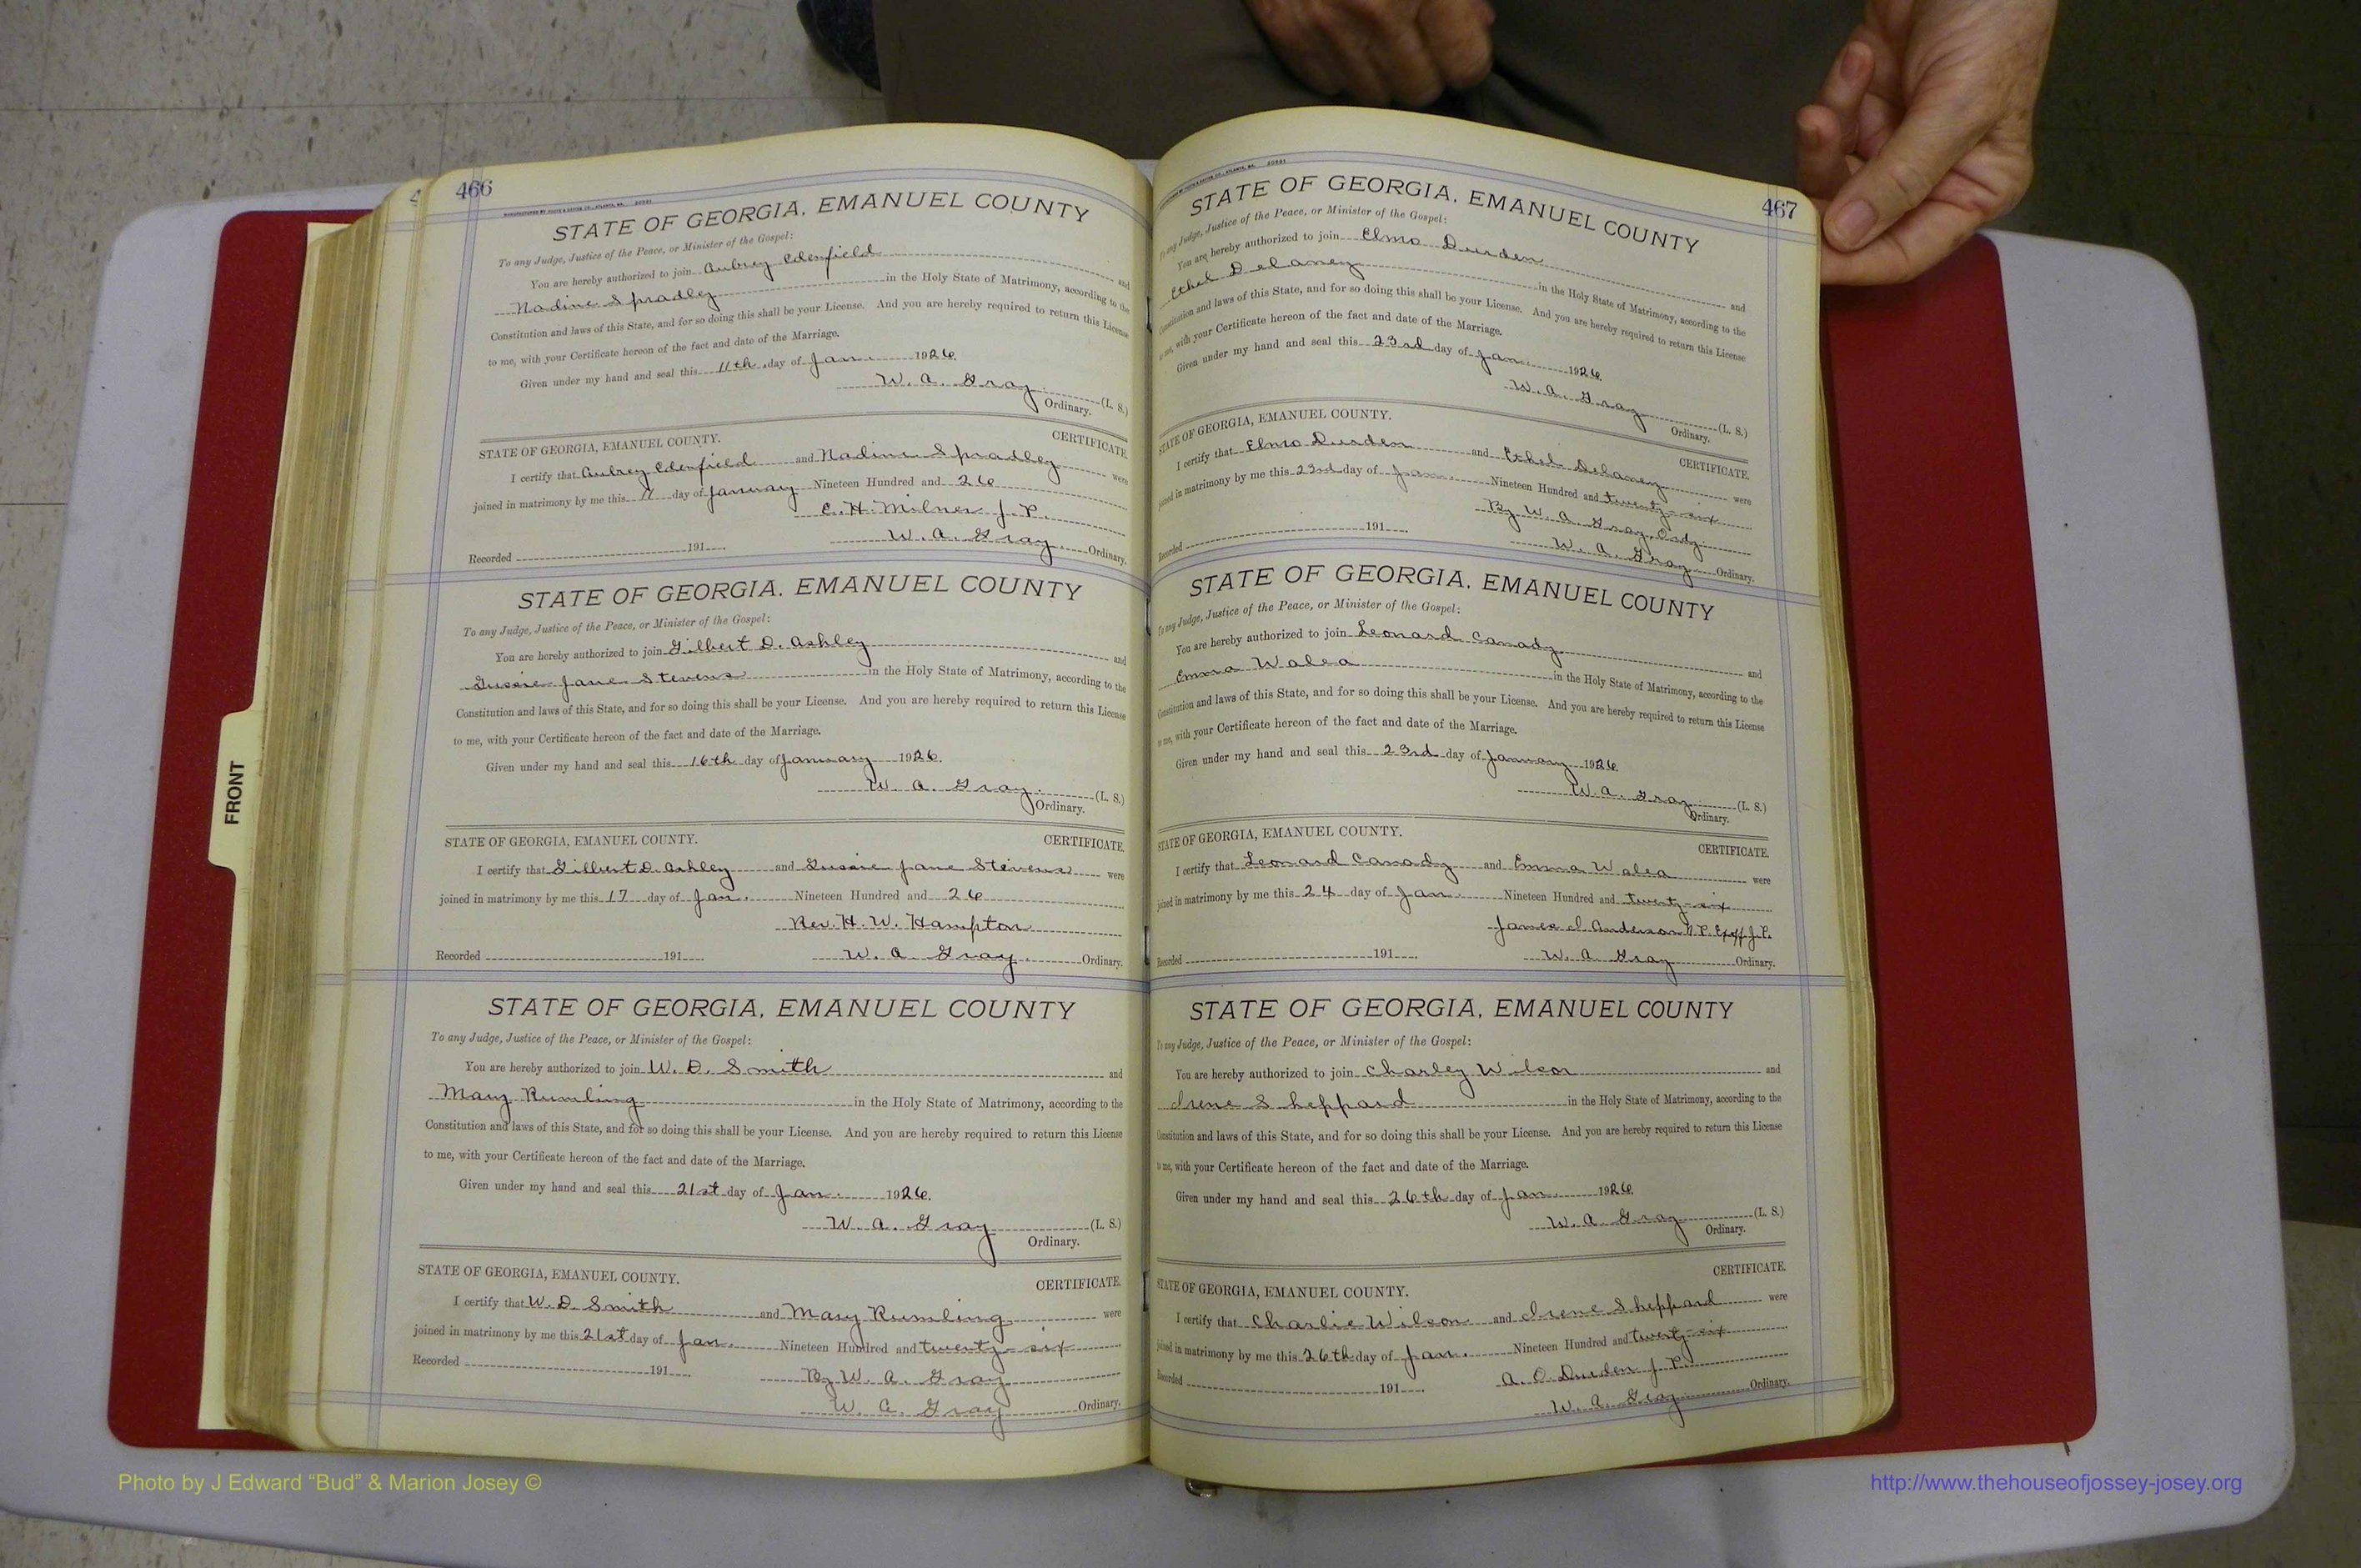 466
STATE OF GEORGIA, EMANUEL COUNTY
To any Judge, Justice of the Peace, or Minister of the Gospel:
You are hereby authorized to join Aubrey Edenfield and
Nadine Spradley in the Holy State of Matrimony, according to the
Constitution and laws of this State, and for so doing this shall be your License. And you are hereby required to return this License
to me, with your Certificate hereon of the fact and date of the Marriage.
Given under my hand and seal this 11th day of Jan. 1926.
W. A. Gray (L. S.)
Ordinary.
STATE OF GEORGIA, EMANUEL COUNTY. CERTIFICATE.
I certify that Aubrey Edenfield and Nadine Spradley were
joined in matrimony by me this 11 day of January Nineteen Hundred and 26
E. H. Milner J. P.
Recorded 191 W. A. Gray Ordinary.
STATE OF GEORGIA, EMANUEL COUNTY
To any Judge, Justice of the Peace, or Minister of the Gospel:
You are hereby authorized to join Gilbert D. Ashley and
Gussie Jane Stevens in the Holy State of Matrimony, according to the
Constitution and laws of this State, and for so doing this shall be your License. And you are hereby required to return this License
to me, with your Certificate hereon of the fact and date of the Marriage.
Given under my hand and seal this 16th day of January 1926.
W. A. Gray. (L. S.)
Ordinary.
STATE OF GEORGIA, EMANUEL COUNTY. CERTIFICATE.
I certify that Gilbert D. Ashley and Gussie Jane Stevens were
joined in matrimony by me this 17 day of Jan. Nineteen Hundred and 26
Rev. H. W. Hampton
Recorded 191 W. A. Gray. Ordinary.
STATE OF GEORGIA, EMANUEL COUNTY
To any Judge, Justice of the Peace, or Minister of the Gospel:
You are hereby authorized to join W. D. Smith and
Mary Rumling in the Holy State of Matrimony, according to the
Constitution and laws of this State, and for so doing this shall be your License. And you are hereby required to return this License
to me, with your Certificate hereon of the fact and date of the Marriage.
Given under my hand and seal this 21st day of Jan. 1926.
W. A. Gray (L. S.)
Ordinary.
STATE OF GEORGIA, EMANUEL COUNTY. CERTIFICATE.
I certify that W. D. Smith and Mary Rumling were
joined in matrimony by me this 21st day of Jan. Nineteen Hundred and twenty-six
By W. A. Gray
Recorded 191 W. A. Gray Ordinary.
467
STATE OF GEORGIA, EMANUEL COUNTY
To any Judge, Justice of the Peace, or Minister of the Gospel:
You are hereby authorized to join Elmo Durden and
Ethel Delaney in the Holy State of Matrimony, according to the
Constitution and laws of this State, and for so doing this shall be your License. And you are hereby required to return this License
to me, with your Certificate hereon of the fact and date of the Marriage.
Given under my hand and seal this 23rd day of Jan. 1926.
W. A. Gray (L. S.)
Ordinary.
STATE OF GEORGIA, EMANUEL COUNTY. CERTIFICATE.
I certify that Elmo Durden and Ethel Delaney were
joined in matrimony by me this 23rd day of Jan. Nineteen Hundred and twenty-six
By W. A. Gray, Ordy.
Recorded 191 W. A. Gray Ordinary.
STATE OF GEORGIA, EMANUEL COUNTY
To any Judge, Justice of the Peace, or Minister of the Gospel:
You are hereby authorized to join Leonard Canady and
Emma Walea in the Holy State of Matrimony, according to the
Constitution and laws of this State, and for so doing this shall be your License. And you are hereby required to return this License
to me, with your Certificate hereon of the fact and date of the Marriage.
Given under my hand and seal this 23rd day of January 1926.
W. A. Gray (L. S.)
Ordinary.
STATE OF GEORGIA, EMANUEL COUNTY. CERTIFICATE.
I certify that Leonard Canady and Emma Walea were
joined in matrimony by me this 24 day of Jan. Nineteen Hundred and twenty-six
James I Anderson N.P. Exoff J.P.
Recorded 191 W. A. Gray Ordinary.
STATE OF GEORGIA, EMANUEL COUNTY
To any Judge, Justice of the Peace, or Minister of the Gospel:
You are hereby authorized to join Charley Wilson and
Irene Sheppard in the Holy State of Matrimony, according to the
Constitution and laws of this State, and for so doing this shall be your License. And you are hereby required to return this License
to me, with your Certificate hereon of the fact and date of the Marriage.
Given under my hand and seal this 26th day of Jan. 1926.
W. A. Gray (L. S.)
Ordinary.
STATE OF GEORGIA, EMANUEL COUNTY. CERTIFICATE.
I certify that Charlie Wilson and Irene Sheppard were
joined in matrimony by me this 26th day of Jan. Nineteen Hundred and twenty-six
A. O. Durden J. P.
Recorded 191 W. A. Gray Ordinary.
FRONT
Photo by J Edward “Bud” & Marion Josey ©
http://www.thehouseofjossey-josey.org